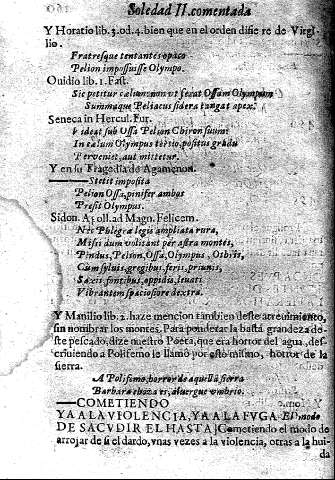 Soledad II. comentada
Y Horatio lib. 3. od. 4. bien que en el orden difiere de Virgi-
lio.
Fratresque tentantes opaco
Pelion imposuisse Olympo.
Ouidio lib. 1. Fast.
Sic petitur cælum non vt ferat Ossam Olympum
Summaque Peliacus sidera tangat apex.
Seneca in Hercul. Fur.
Videat sub Ossa Pelion Chiron suum
In cælum Olympus tertio positus gradu
Perveniet, aut mittetur.
Y en su Tragedia de Agamenon.
Stetit imposita
Pelion Ossa, pinifer ambos
Presit Olympus.
Sidon. Apoll. ad Magn. Felicem.
Nec Phlegræ legis ampliata rura,
Missi dum volitant per astra montes,
Pindus, Pelion, Ossa, Olympus, Othris,
Cum syluis, gregibus, feris, pruinis,
Saxis, fontibus, oppidis, leuati
Vibrantem spaciosiore dextra.
Y Manilio lib. 2. haze mencion tambien deste atreuimiento,
sin nombrar los montes. Para ponderar la basta grandeza de-
ste pescado, dize nuestro Poeta, que era horror del agua, des-
criuiendo a Polifemo le llamò por esto mismo, horror de la
sierra.
A Polifemo, horror de aquella sierra
Barbara choza es, aluergue vmbrio.
COMETIENDO
YA A LA VIOLENCIA, YA A LA FVGA El modo
DE SACVDIR EL HASTA] Cometiendo el modo de
arrojar de si el dardo, vnas vezes a la violencia, otras a la hui-
da